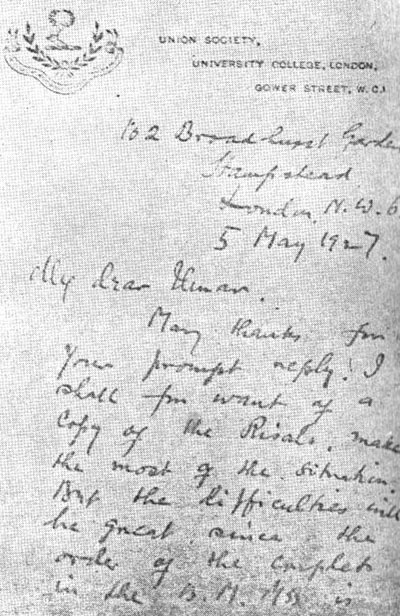 UNION SOCIETY,
UNIVERSITY COLLEGE, LONDON,
GOWER STREET, W.C.1
162 Broadhurst Garden
Hampstead
London, N.W.6
5 May 1927.
My dear Umar.
Many thanks for
your prompt reply! I
shall for want of a
Copy of the Risala, make
the most of the situation.
But the difficulties will
be great, since the
order of the couplets
in the B.M. MS is